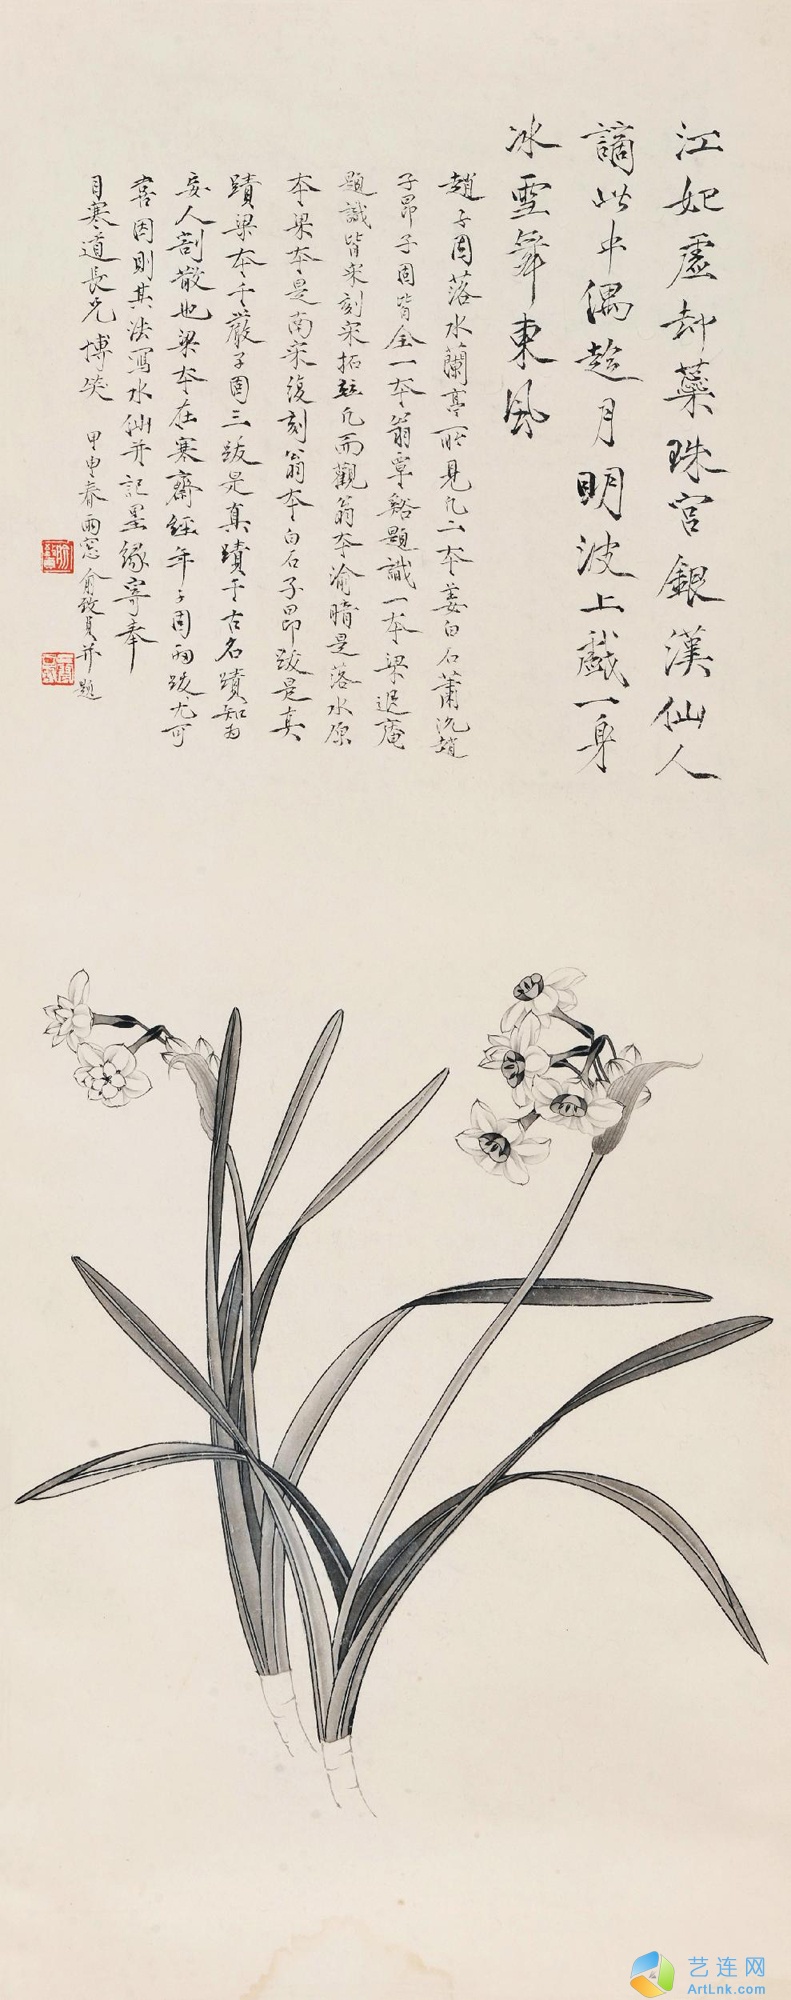 江妃虛却蘂珠宮銀漢仙人
謫此中偶趁月明波上戲一身
冰雪舞東風
趙子固落水蘭亭所見凡二本姜白石蕭沇趙
子昂子固皆全一本翁覃谿題識一本梁退庵
題識皆宋刻宋拓竝几而觀翁本渝暗是落水原
本梁本是南宋復刻翁本白石子昂跋是真
蹟梁本千巖子固三跋是真蹟于古名蹟知為
妄人割散也梁本在寒齋經年子固兩跋尤可
喜因則其法寫水仙并記墨緣寄奉
目寒道長兄博笑 甲申春雨窓俞致貞并題
艺连网
ArtLnk.com